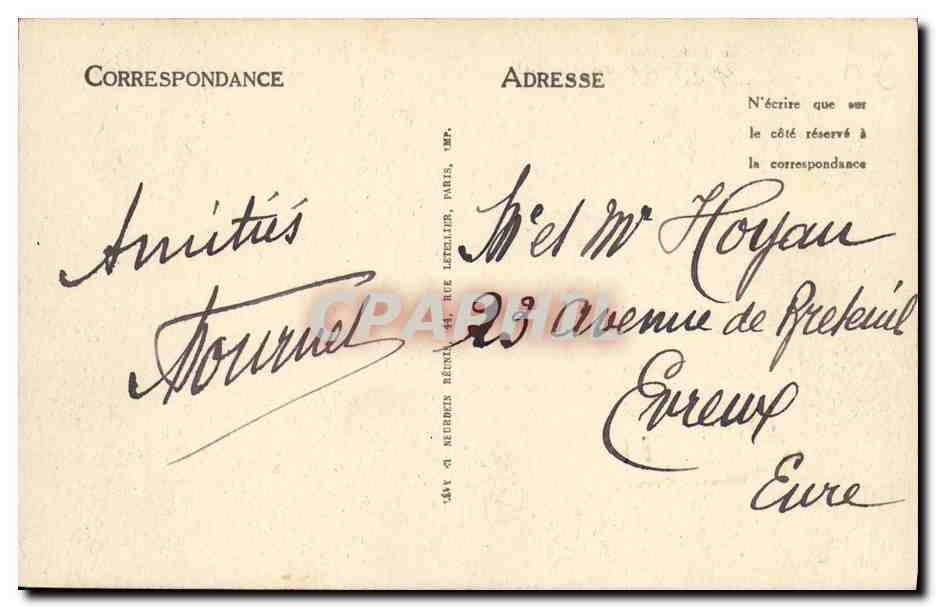 CORRESPONDANCE
ADRESSE
N'écrire que sur
le côté réservé à
la correspondance
Amitiés
Tournel
LÉVY & NEURDEIN RÉUNIS, 44, RUE LETELLIER, PARIS, IMP.
Mr et Mr Hoyau
23 avenue de Breteuil
Evreux
Eure
CPAPHIL